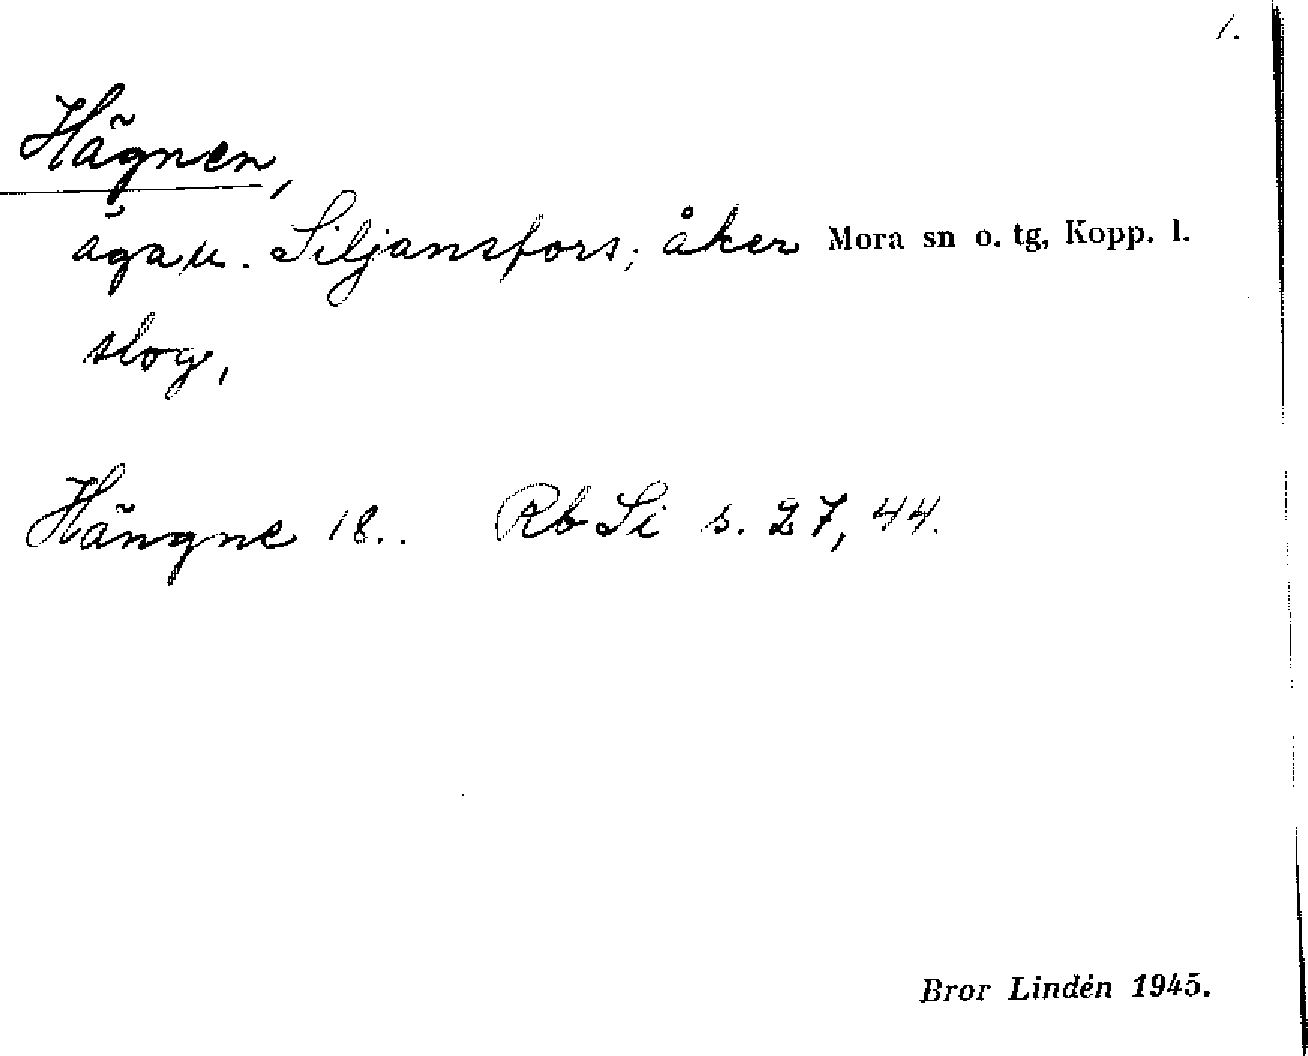 1.
Hägnen,
äga u. Siljansfors; åker Mora sn o. tg, Kopp. l.
slog,
Hängne 18.. Rb Si s. 27, 44.
Bror Lindén 1945.